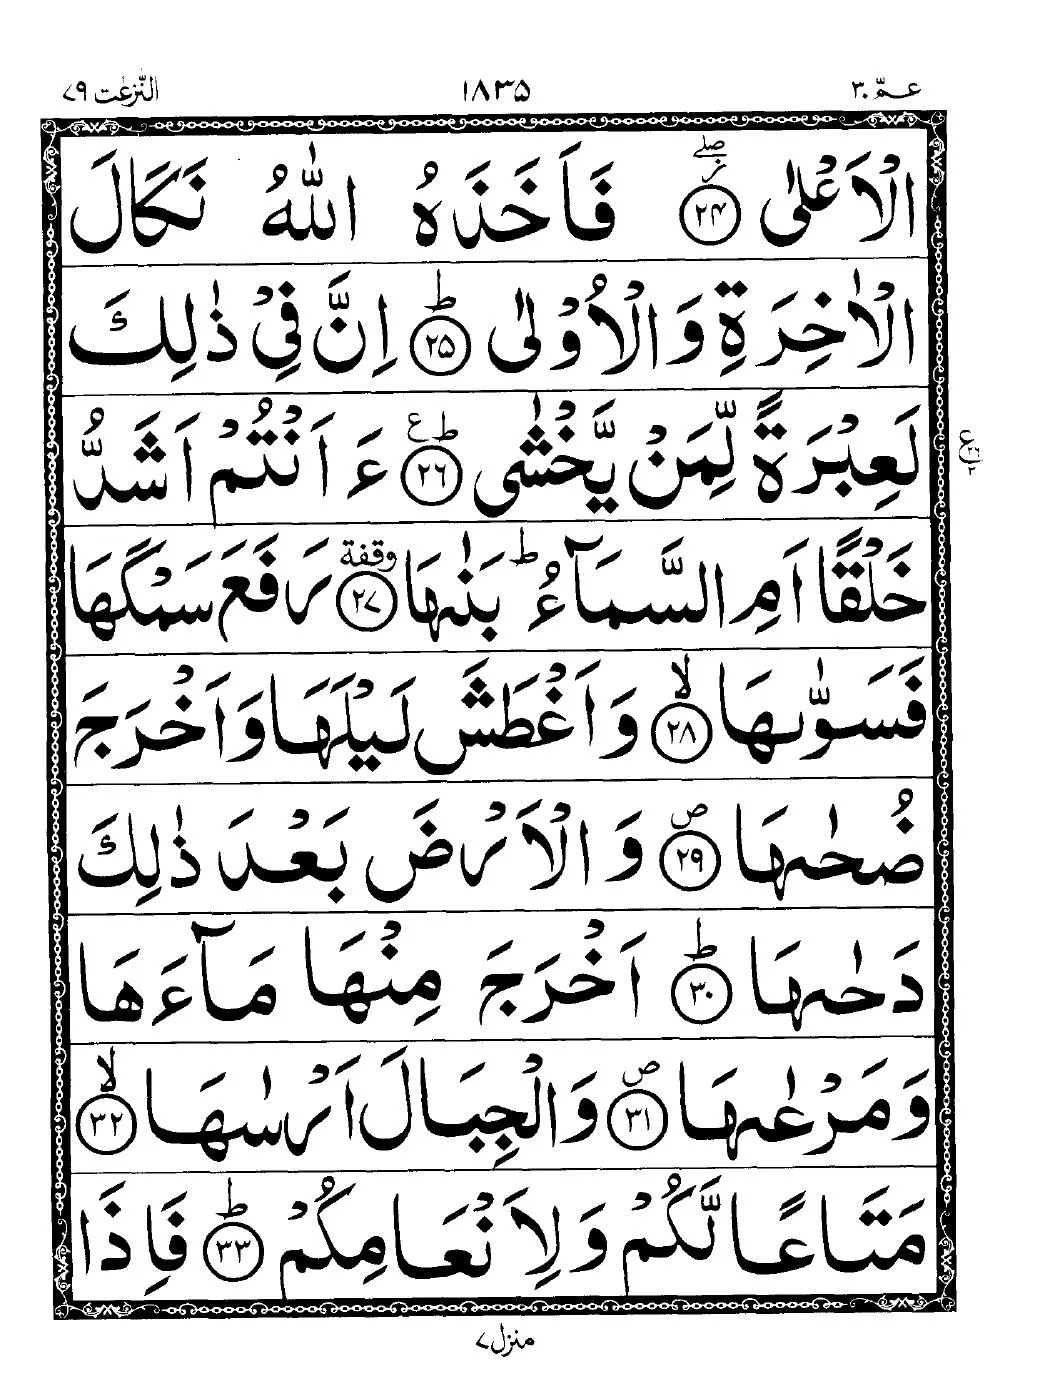 عـمّ ٣٠ ١٨٣٥ النّٰزعٰت ٧٩
الْاَعْلٰى ﴿٢٤﴾ فَاَخَذَهُ اللّٰهُ نَكَالَ
الْاٰخِرَةِ وَالْاُوْلٰى ﴿٢٥﴾ ط اِنَّ فِيْ ذٰلِكَ
لَعِبْرَةً لِّمَنْ يَّخْشٰى ﴿٢٦﴾ ط ع ءَاَنْتُمْ اَشَدُّ
ع ٢٦ ٢
خَلْقًا اَمِ السَّمَآءُ ط بَنٰىهَا ﴿٢٧﴾ وقفة رَفَعَ سَمْكَهَا
فَسَوّٰىهَا ﴿٢٨﴾ لا وَاَغْطَشَ لَيْلَهَا وَاَخْرَجَ
ضُحٰىهَا ﴿٢٩﴾ ص وَالْاَرْضَ بَعْدَ ذٰلِكَ
دَحٰىهَا ﴿٣٠﴾ ط اَخْرَجَ مِنْهَا مَآءَهَا
وَمَرْعٰىهَا ﴿٣١﴾ ص وَالْجِبَالَ اَرْسٰىهَا ﴿٣٢﴾ لا
مَتَاعًا لَّكُمْ وَلِاَنْعَامِكُمْ ﴿٣٣﴾ ط فَاِذَا
منزل ٧